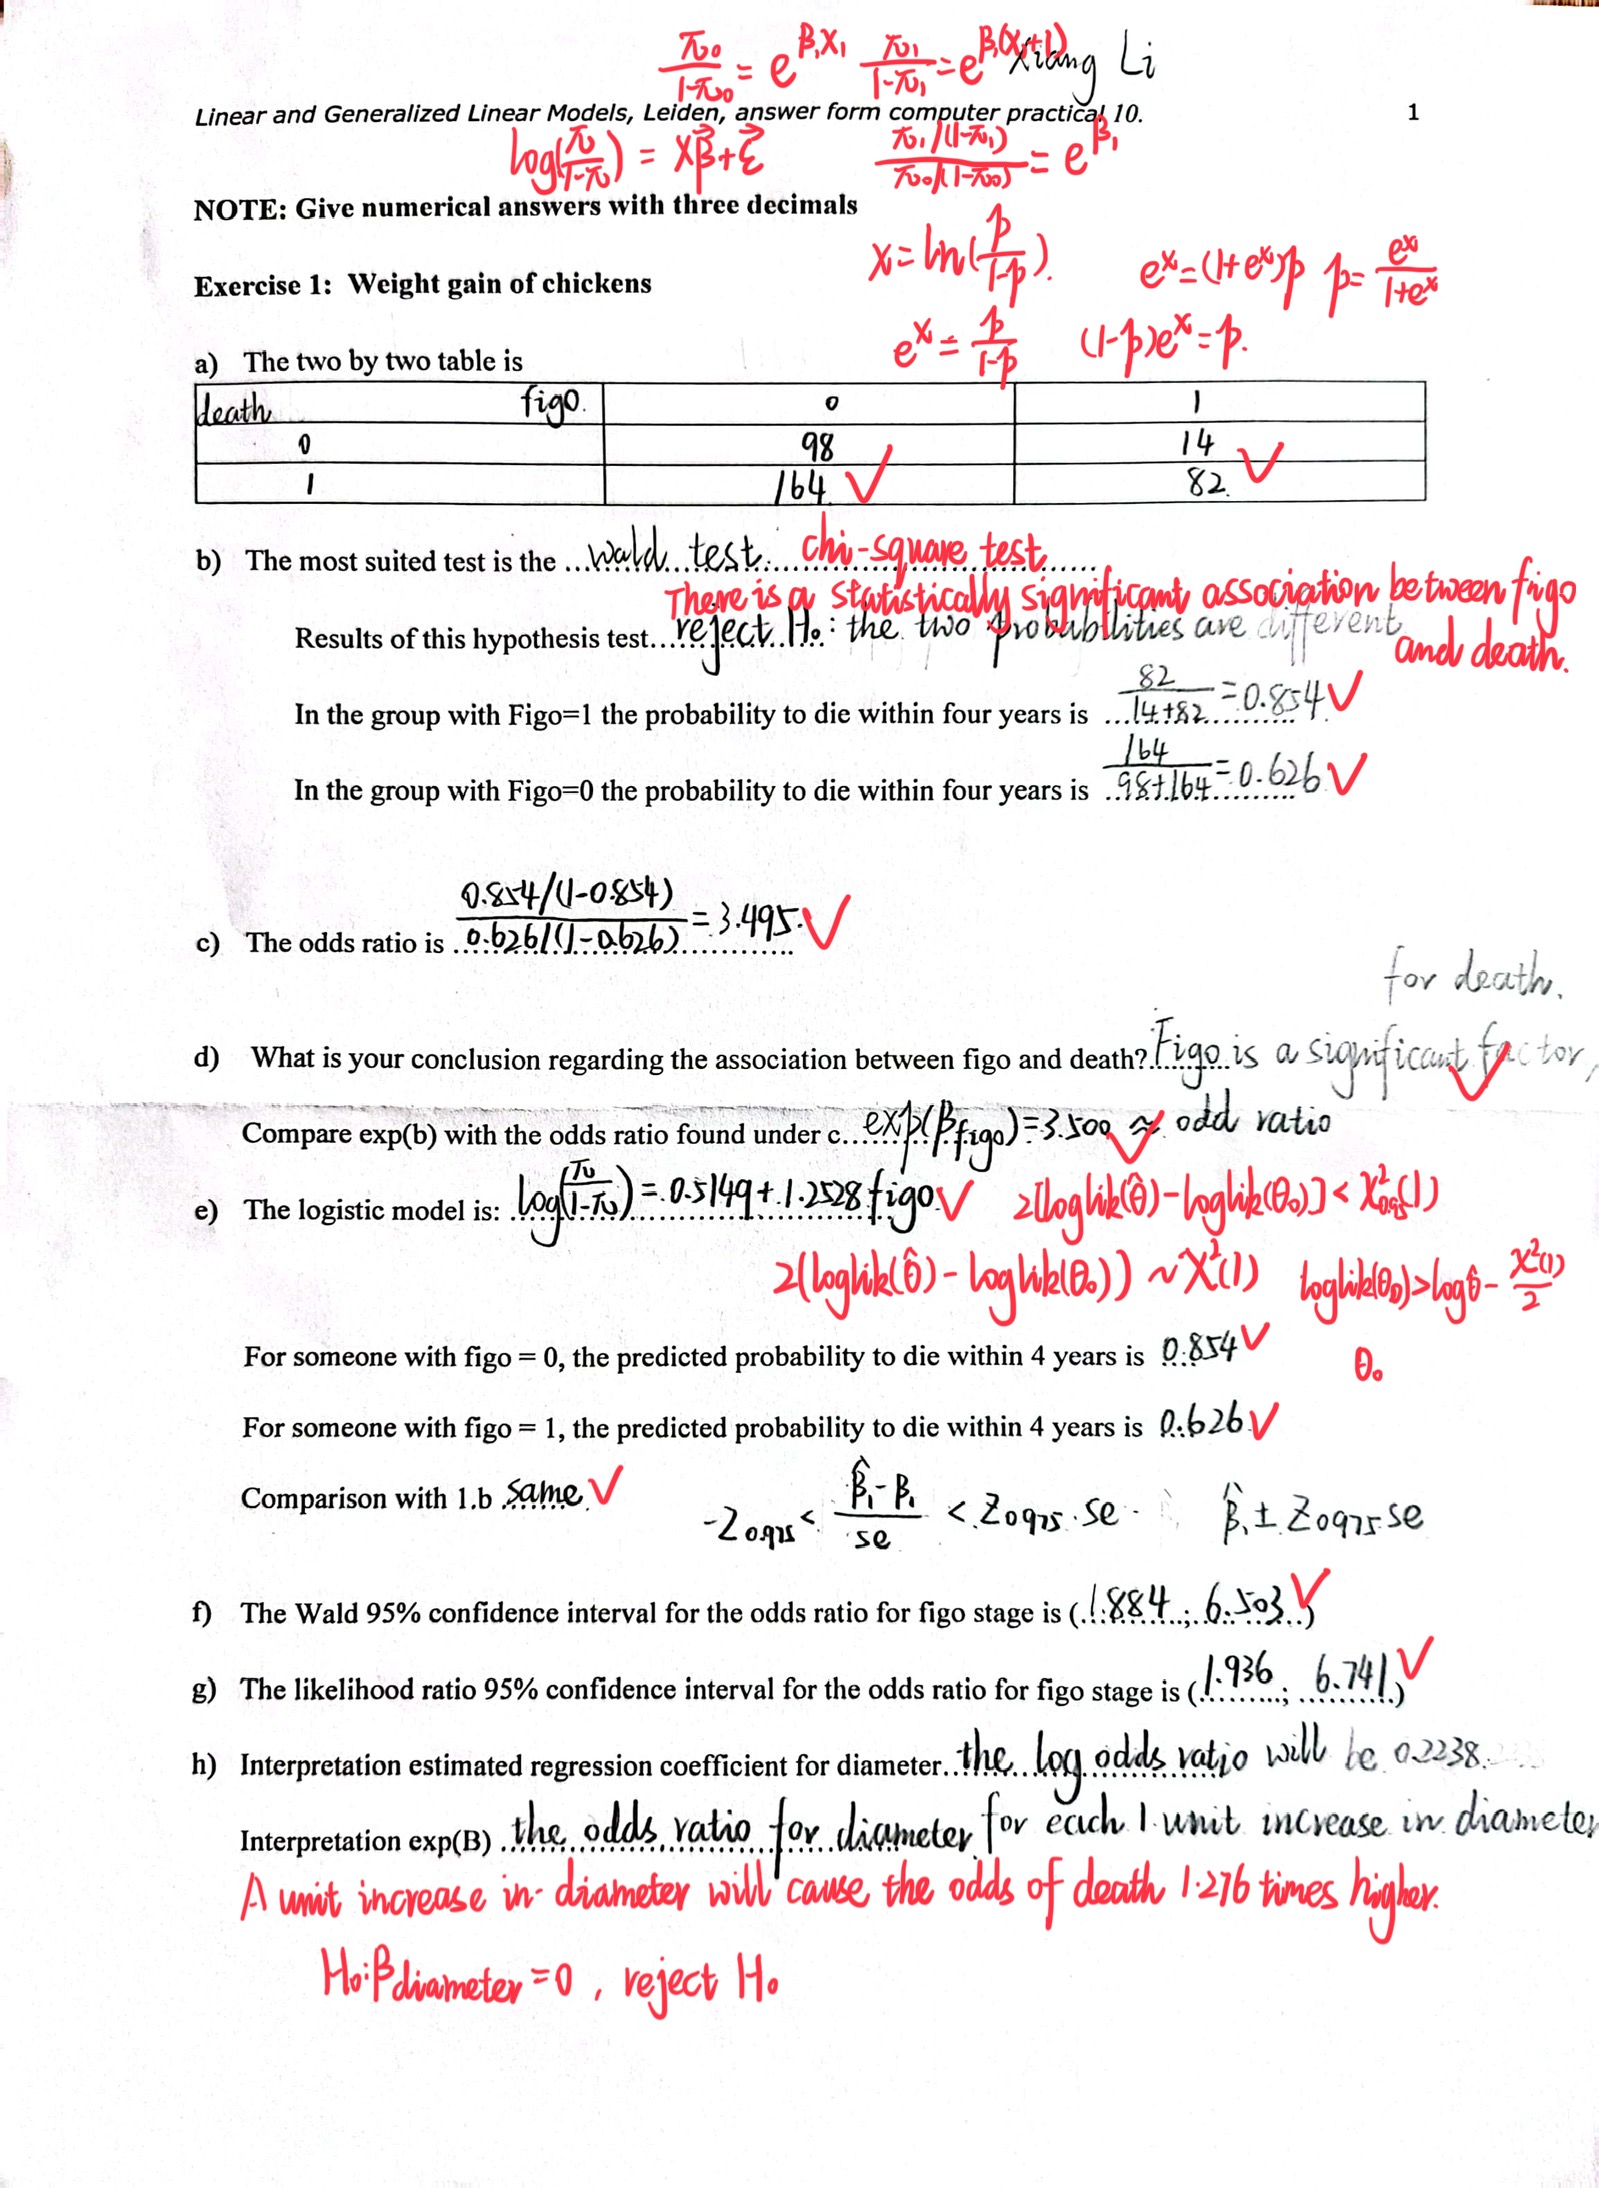 π₀/(1-π₀) = e^{β₁X₁}   π₁/(1-π₁) = e^{β₁(X₁+1)}   Xiang Li
Linear and Generalized Linear Models, Leiden, answer form computer practical 10.   1
log(π/(1-π)) = Xβ⃗+ε⃗   (π₁/(1-π₁))/(π₀/(1-π₀)) = e^{β₁}
NOTE: Give numerical answers with three decimals
x = ln(p/(1-p)).   e^x = (1+e^x)p   p = e^x/(1+e^x)
Exercise 1: Weight gain of chickens
e^x = p/(1-p)   (1-p)e^x = p.
a) The two by two table is
death figo. 0 1
0 98 14
1 164 82.
b) The most suited test is the ...wald test. chi-square test
There is a statistically significant association between frigo and death.
Results of this hypothesis test...reject H₀: the two probabilities are different
In the group with Figo=1 the probability to die within four years is 82/(14+82) = 0.854 ✓
In the group with Figo=0 the probability to die within four years is 164/(98+164) = 0.626 ✓
c) The odds ratio is 0.854/(1-0.854) / 0.626/(1-0.626) = 3.495. ✓
d) What is your conclusion regarding the association between figo and death? Figo is a significant factor, for death.
Compare exp(b) with the odds ratio found under c... exp(β_figo) = 3.500 ≈ odd ratio
e) The logistic model is: log(π/(1-π)) = 0.5149 + 1.2528 figo ✓   2[loglik(θ̂)-loglik(θ₀)] < χ²₀.₉₅(1)
2(loglik(θ̂) - loglik(θ₀)) ~ χ²(1)   loglik(θ₀) > logθ̂ - χ²(1)/2
For someone with figo = 0, the predicted probability to die within 4 years is 0.854 ✓   θ₀
For someone with figo = 1, the predicted probability to die within 4 years is 0.626 ✓
Comparison with 1.b same. ✓   -Z₀.₉₇₅ < (β̂₁-β₁)/se < Z₀.₉₇₅·se   β̂₁ ± Z₀.₉₇₅ se
f) The Wald 95% confidence interval for the odds ratio for figo stage is (1.884 ; 6.503) ✓
g) The likelihood ratio 95% confidence interval for the odds ratio for figo stage is (1.936 ; 6.741) ✓
h) Interpretation estimated regression coefficient for diameter...the log odds ratio will be 0.2238.
Interpretation exp(B) the odds ratio for diameter for each 1 unit increase in diameter
A unit increase in diameter will cause the odds of death 1.276 times higher.
H₀: β diameter = 0, reject H₀